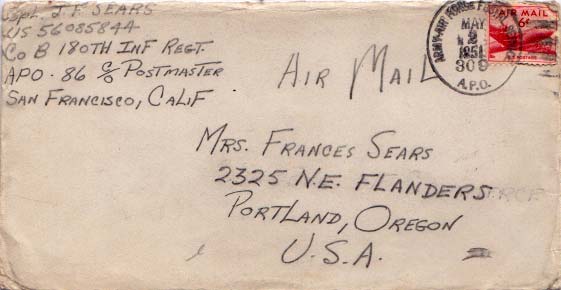 Cpl. J.F. SEARS
US 56085844
Co B 180TH INF REGT.
APO. 86 C/O POSTMASTER
SAN FRANCISCO, CALIF
AIR MAIL
MAY
2
1951
309
A.P.O.
AIR MAIL
6¢
U.S. POSTAGE
MRS. FRANCES SEARS
2325 N.E. FLANDERS
PORTLAND, OREGON
U.S.A.